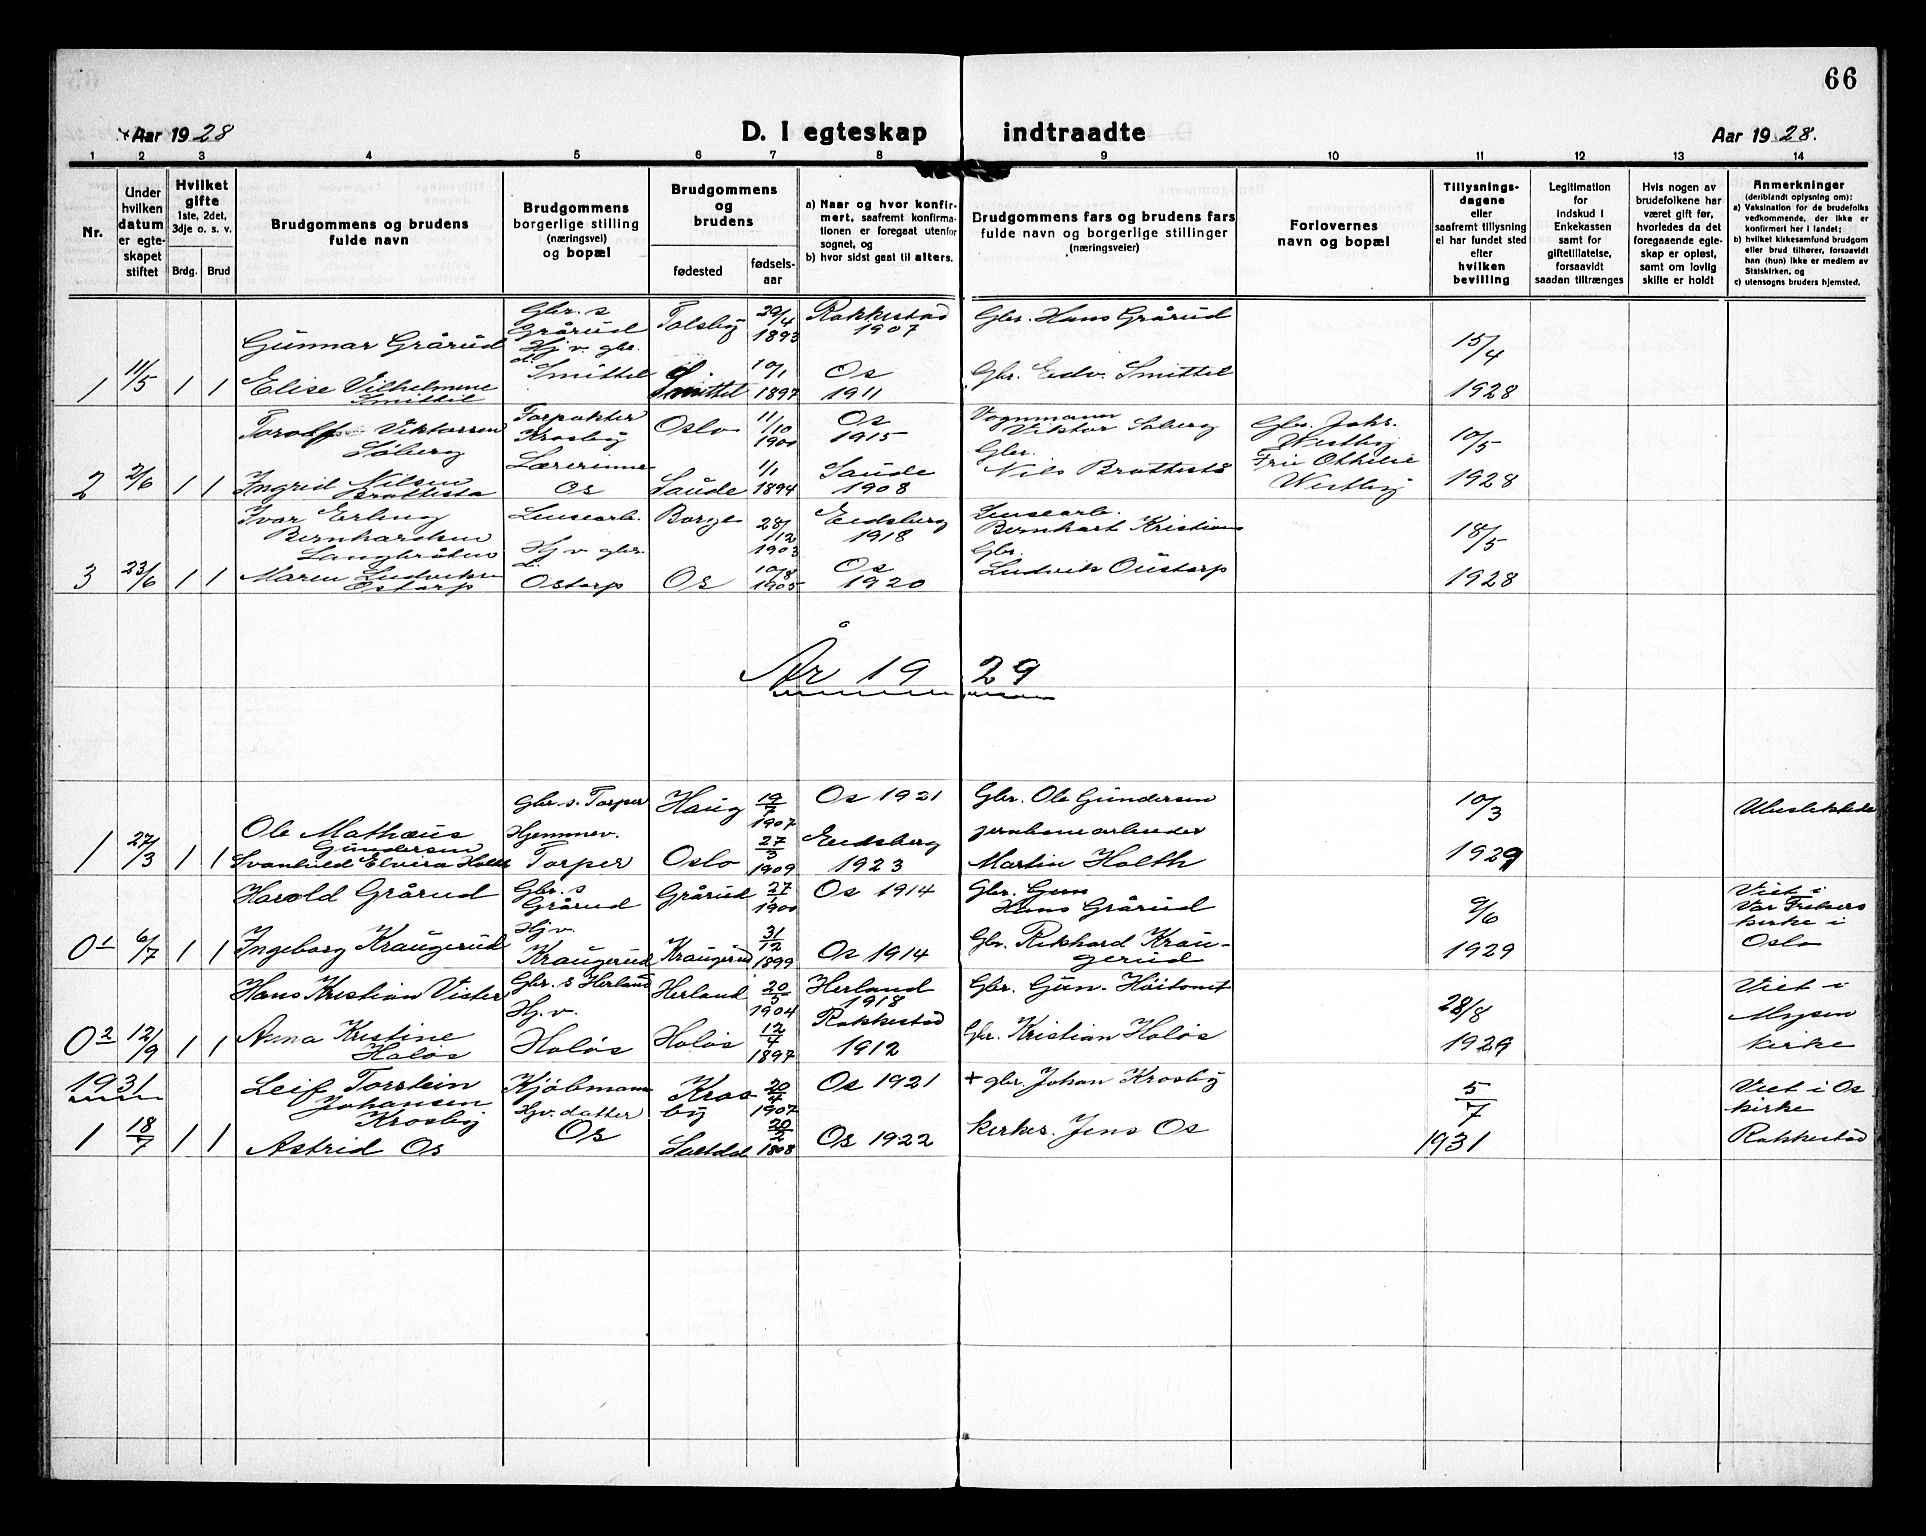 66
Aar 1928
D. I egteskap indtraadte
Aar 1928.
1 2 3 4 5 6 7 8 9 10 11 12 13 14
Nr.
Under hvilken datum er egteskapet stiftet
Hvilket gifte
1ste, 2det, 3dje o. s. v.
Brdg. Brud
Brudgommens og brudens fulde navn
Brudgommens borgerlige stilling (næringsvei) og bopæl
Brudgommens og brudens
fødested
fødselsaar
a) Naar og hvor konfirmert, saafremt konfirmationen er foregaat utenfor sognet, og
b) hvor sidst gaat til alters.
Brudgommens fars og brudens fars fulde navn og borgerlige stillinger (næringsveier)
Forlovernes navn og bopæl
Tillysningsdagene eller saafremt tillysning ei har fundet sted efter hvilken bevilling
Legitimation for indskud i Enkekassen samt for giftetillatelse, forsaavidt saadan tiltrænges
Hvis nogen av brudefolkene har været gift før, hvorledes da det foregaaende egteskap er opløst, samt om lovlig skifte er holdt
Anmerkninger
(deriblandt oplysning om):
a) Vaksination for de brudefolks vedkommende, der ikke er konfirmert her i landet;
b) hvilket kirkesamfund brudgom eller brud tilhører, forsaavidt han (hun) ikke er medlem av Statskirken, og
c) utensogns bruders hjemsted.
1 11/5 1 1
Gunnar Grårud
Gbr. s Grårud
29/4 1893
Rakkestad 1907
Gbr. Hans Grårud
15/4 1928
Elise Vilhelmine Smittil
Hj v. gbr. d. Smittel
Smittel
10/1 1897
Os 1911
Gbr. Edv. Smittel
2 2/6 1 1
Torolf Viktorsen Söberg
Krosby
Oslo
11/10 1900
Os 1915
Vognmann Viktor Söberg
Gbr. Johs. Westby
10/5 1928
Ingrid Nilsen Brattestå
Lærerinne Os
Saude
1/1 1894
Saude 1908
Gbr. Nils Brattestå
Fru Othilie Westby
3 23/6 1 1
Ivar Erling Bernhardsen Langbråten
Lensearb.
Borge
28/12 1903
Eidsberg 1918
Lensearb. Bernhart Kristians
18/5 1928
Maren Ludviks Östorp
Hj v gbr. d. Ostorp
Os
10/8 1905
Os 1920
Gbr. Ludvik Oustorp
År 1929
1 27/3 1 1
Ole Mathæus Gundersen
Gbr. s. Torper
Haug
19/7 1907
Os 1921
Gbr. Ole Gundersen
10/3 1929
Svanhild Elvira Holth
Hjemmev. Torper
Oslo
27/3 1909
Eidsberg 1923
jernbanearbeider Martin Holth
0 1 6/7 1 1
Harold Grårud
Gbr. s Grårud
Grårud
Os 1914
Gbr. Gun Hans Grårud
9/6 1929
Viet i Vår Frelsers kirke i Oslo
Ingeborg Kraugerud
Hj v. Kraugerud
Kraugerud
31/12 1899
Os 1914
Gbr. Rikhard Kraugerud
0 2 12/9 1 1
Hans Kristian Vister
Gbr. s Herland
Herland
20/5 1904
Herland 1918
Gbr. Gun.
28/8 1929
Viet i Mysen kirke
Anna Kristine Holös
Hj. v. Holös
Holös
12/7 1897
Rakkestad 1912
Gbr. Kristian Holös
1931
1 18/7 1 1
Leif Torstein Johansen Krosby
Kjöbmann
Krosby
20/4 1907
Os 1921
+ gbr. Johan Krosby
5/7 1931
Viet i Os kirke Rakkestad
Astrid Os
Hjv. datter Os
20/2 1808
Os 1922
kirkes. Jens Os